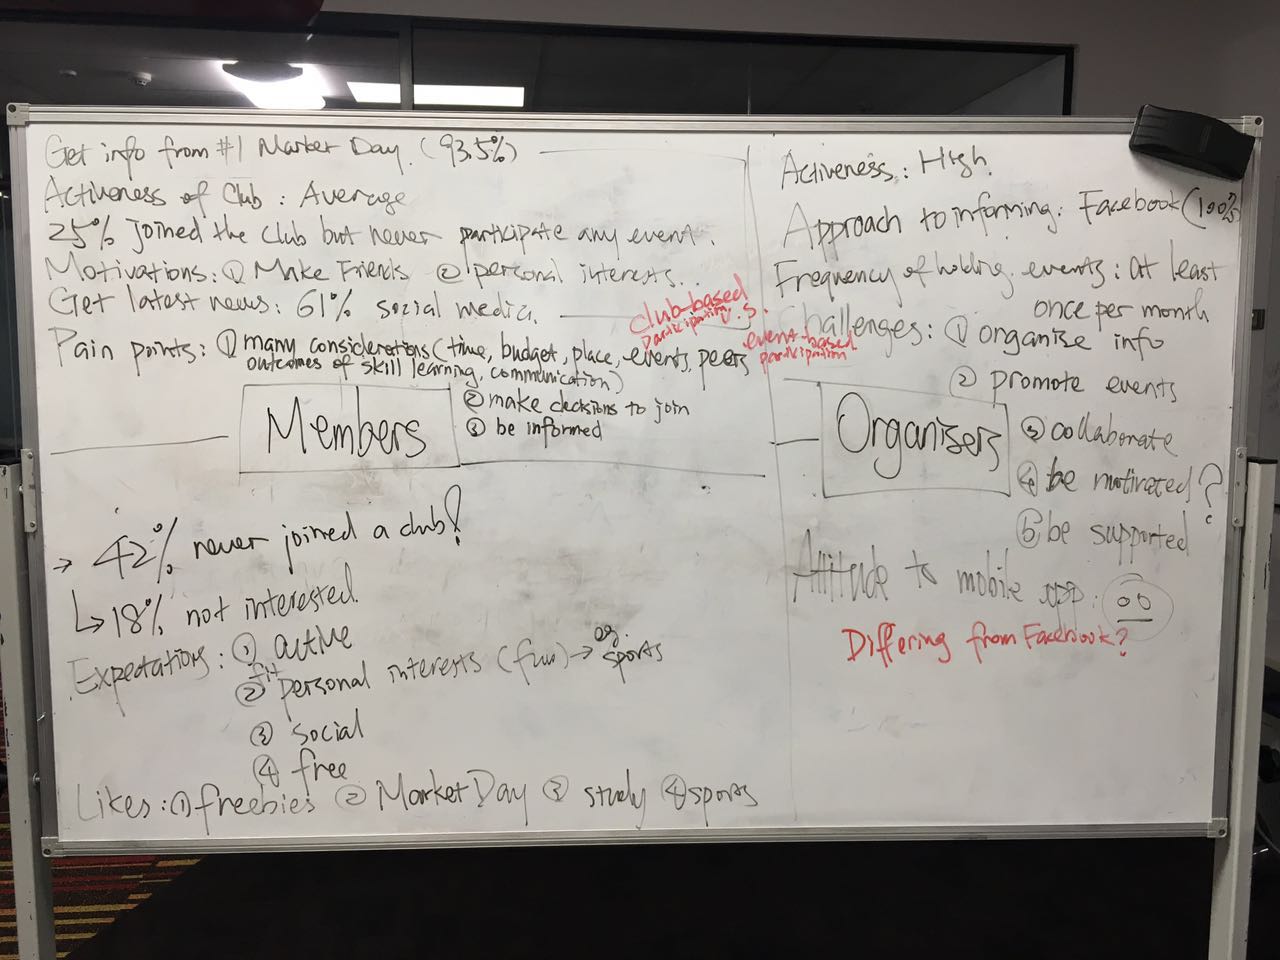 Get info from #1 Market Day. (93.5%)
Activeness of Club : Average
25% joined the club but never participate any event.
Motivations: ① Make Friends ② personal interests..
Get latest news: 61% social media.
Pain points: ① many considerations (time, budget, place, events, peers
outcomes of skill learning, communication)
② make decisions to join
③ be informed
Members
→ 42% never joined a club!
↳ 18% not interested.
Expectations: ① active
② fit personal interests (fun) → eg sports
③ social
④ free
Likes: ① freebies ② Market Day ③ study ④ sports
club-based
participation
v.s.
event-based
participation
Activeness: High.
Approach to informing: Facebook (100%)
Frequency of holding events: at least
once per month
Challenges: ① organise info
② promote events
③ collaborate
④ be motivated ?
⑤ be supported
Organisers
Attitude to mobile app:
Differing from Facebook?